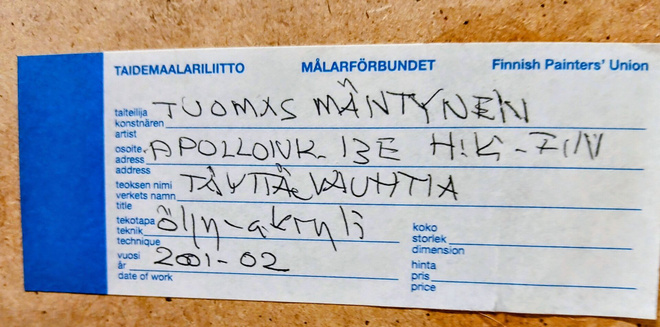 TAIDEMAALARILIITTO MÅLARFÖRBUNDET Finnish Painters' Union
taiteilija
konstnären TUOMAS MÄNTYNEN
artist
osoite
adress APOLLONK. 13E H:KI - FIN
address
teoksen nimi
verkets namn TÄYTTÄ VAUHTIA
title
tekotapa
teknik öljy-akryyli koko
technique storlek
dimension
vuosi
år 2001-02 hinta
date of work pris
price